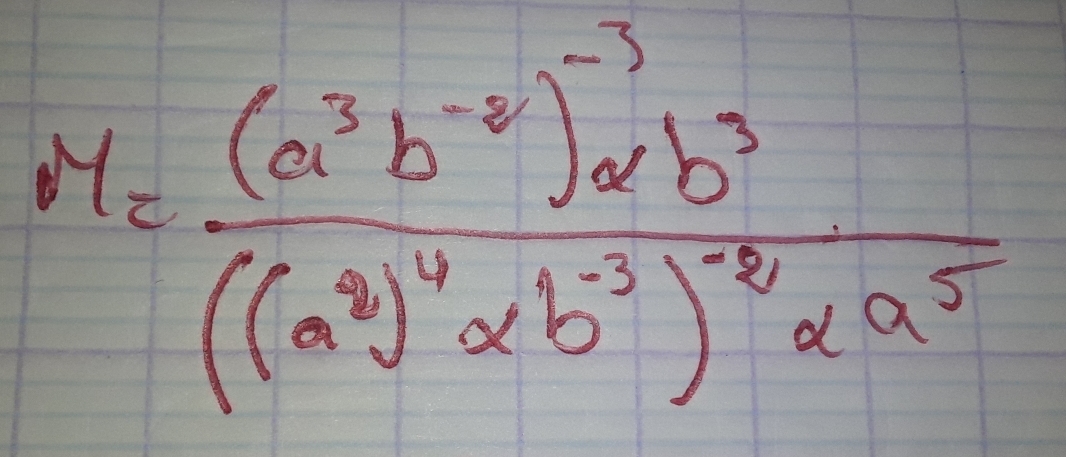 M = (a³b⁻²)⁻³ × b³
((a²)⁴ × b⁻³)⁻² × a⁵